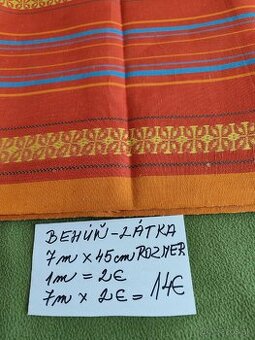 BEHÚŇ-LÁTKA
7m × 45cm ROZMER
1m = 2€
7m × 2€ = 14€